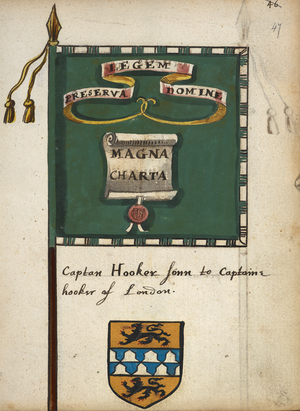 46.
47
LEGEM
PRESERVA DOMINE
MAGNA
CHARTA
Captan Hooker sonn to Captaine
hooker of London.